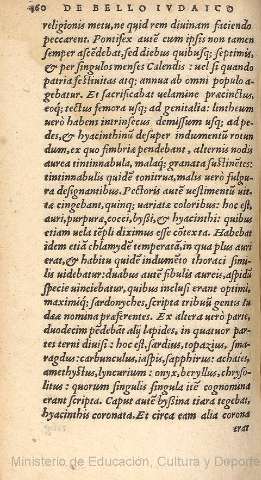 460 DE BELLO IVDAICO
religionis metu, ne quid rem diuinam faciendo
peccarent. Pontifex autē cum ipsis non tamen
semper ascēdebat, sed diebus quibusq; septimis,
& per singulos menses Calendis : uel si quando
patria festiuitas atq; annua ab omni populo a-
gebatur. Et sacrificabat uelamine præcinctus,
eoq; tectus femora usq; ad genitalia: lintheum
uerò habens intrinsecus demissum usq; ad pe-
des, & hyacinthinū desuper indumentū rotun
dum, ex quo fimbria pendebant, alternis nodis
aurea tintinnabula, malaq; granata sustinētes:
tintinnabulis quidē tonitrua, malis uerò fulgu-
ra designantibus. Pectoris autē uestimentū uit-
ta cingebant, quinq; uariatæ coloribus: hoc est,
auri, purpuræ, cocci, byssi, & hyacinthi: quibus
etiam uela tēpli diximus esse cōtexta. Habebat
idem etiā chlamydē temperatā, in qua plus auri
erat, & habitu quidē indumēto thoraci simi-
lis uidebatur: duabus autē fibulis aureis, aspidū
specie uinciebatur, quibus inclusi erant optimi,
maximiq; sardonyches, scripta tribuū gentis Iu
dææ nomina præferentes. Ex altera uerò parte,
duodecim pēdebāt alij lapides, in quatuor par-
tes terni diuisi : hoc est, sardius, topazius, sma-
ragdus: carbunculus, iaspis, sapphirus: achates,
amethystus, lyncurium : onyx, beryllus, chryso-
litus : quorum singulis singula itē cognomina
erant scripta. Caput autē byssina tiara tegebat,
hyacinthis coronata. Et circa eam alia corona
erat
Ministerio de Educación, Cultura y Deporte